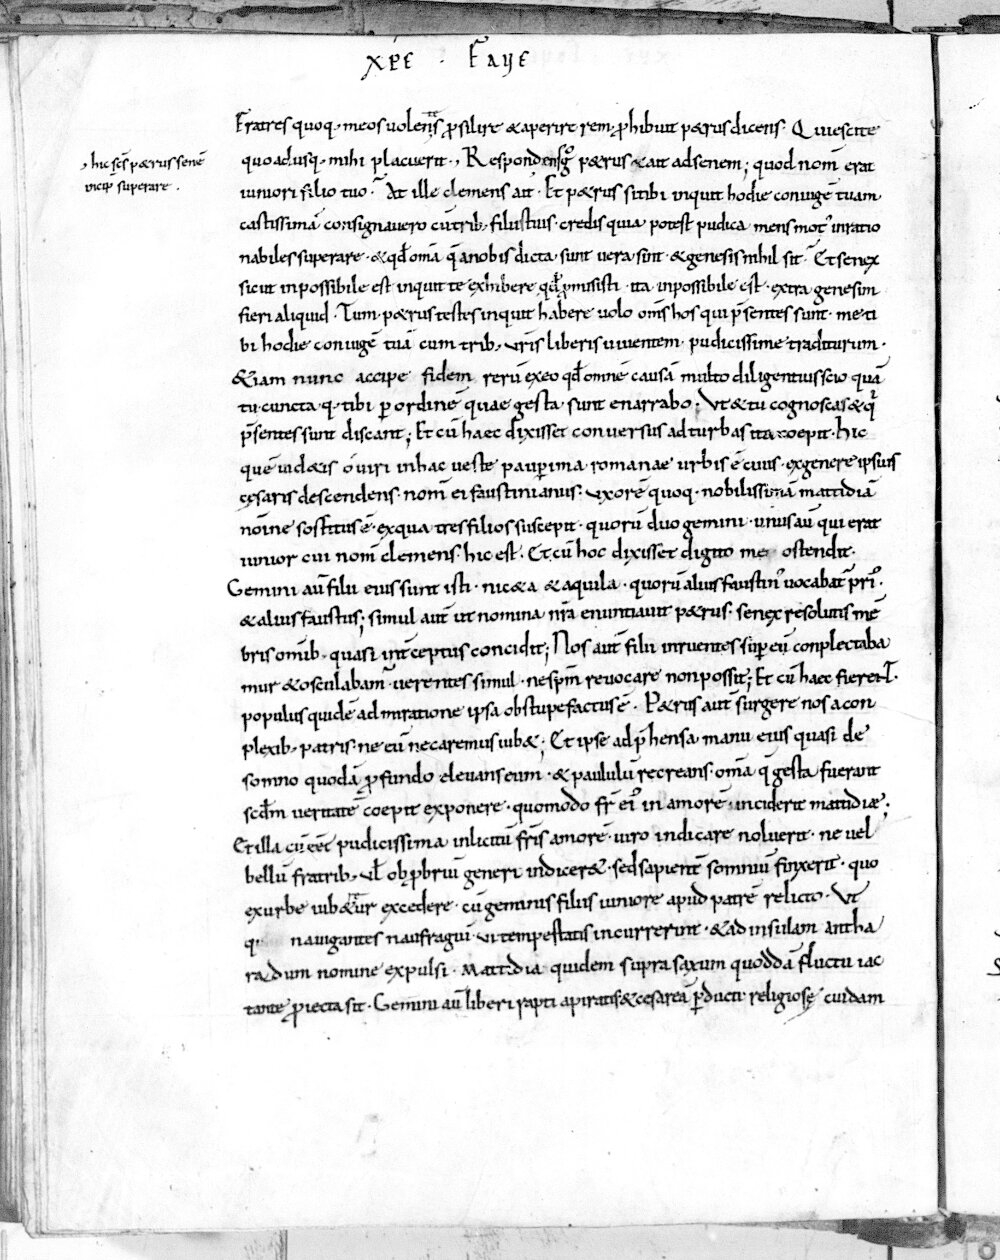 xp̄e · Faue
Fratres quoq· meos uolen̄s ꝓsilire & aperire rem, ꝓhibuit p&rus dicens· Quiescite
quo adusq· mihi placuerit·, Respondensg̊ p&rus & ait ad senem; quod nom̄ erat
, hic scs̄ p&rus senē
incip̄ superare ·
iuniori filio tuo· At ille clemens ait· Et p&rus si tibi inquit hodie coniugē tuam
castissimā consignauero cū trib· filiis tuis· credis quia potest pudica mens mot' inratio
nabiles superare· & qđ om̄a q̄ a nobis dicta sunt uera sint· & genesis nihil sit· Et senex
sicut inpossibile est inquit te exhibere qđ ꝓmisisti· ita inpossibile est· extra genesim
fieri aliquid· Tum p&rus testes inquit habere uolo om̄s hos qui p̄sentes sunt· me ti
bi hodie coniugē tuā cum trib· ur̄is liberis uiuentem· pudicissime traditurum·
& iam nunc accipe fidem rerū ex eo qđ omnē causā multo diligentius scio quā
tu· cuncta q· tibi ꝑ ordinē quae gesta sunt enarrabo; Ut & tu cognoscas & q̄
p̄sentes sunt discant; Et cū haec dixisset conuersus ad turbas ita coepit· hic
quē uid&is o uiri in hac ueste pauꝑrima romanae urbis ē ciuis· ex genere ipsius
cęsaris descendens· nom̄ ei faustinianus· uxorē quoq· nobilissimā mattidiā
nōine sortitus ē· ex qua tres filios suscepit· quorū duo gemini· unus aū qui erat
iunior cui nom̄ clemens· hic est· Et cū hoc dixisset digito me ostendit·
Gemini aū filii eius sunt isti· nic&a & aquila· quorū alius faustin' uocabat̄ pri'·
& alius faustus; simul aut̄ ut nomina nr̄a enuntiauit p&rus· senex resolutis mē
bris omīb· quasi int̄ceptus concidit; Nos aut̄ filii inruentes suꝑ eū conplectaba
mur & osculabam̄ uerentes simul· ne spm̄ reuocare non possit; Et cū haec fierent·
populus quidē admiratione ipsa obstupefactus ē· P&rus aut̄ surgere nos a con
plexib· patris· ne eū necaremus iub&; Et ipse adp̄hensa manu eius quasi de
somno quodā ꝓfundo eleuans eum· & paululū recreans· om̄a q̄ gesta fuerant
scđm ueritatē coepit exponere· quomodo fr̄ ei' in amorē inciderit mattidiæ·
Et illa cū eēt pudicissima inlicitū fr̄is amorē· uiro indicare noluerit· ne uel
bellū fratrib· uł obꝓbriū generi indicer&· sed sapient̄ somniū finxerit· quo
ex urbe iuber&ur excedere· cū geminis filiis iuniore apud patrē relicto· Ut
nauigantes naufragiū· ui tempestatis incurrerint· & ad insulam antha
radum nomine expulsi· Mattidia quidem supra saxum quoddā fluctu iac
tante ꝓiecta sit· Gemini aū liberi rapti a piratis & cesareā ꝑducti religiosę cuidam